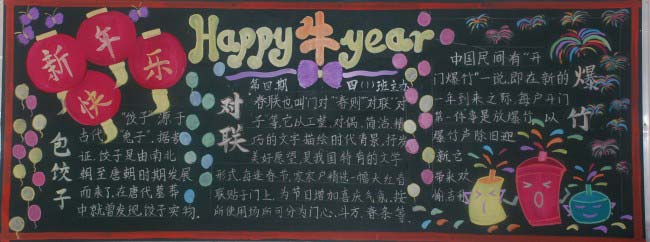 新年快乐
Happy 牛 year
第四期 四(1)班主办
包饺子
"饺子"源于
古代"
证,饺子是由南北
朝至唐朝时期发展
而来了,在唐代墓葬
中就曾发现饺子实物.
对联
春联也叫"门对"春贴"对联"对
子"等,它以工整、对偶、简洁、精
巧的文字描绘时代背景,抒发
美好愿望,是我国特有的文字
形式,每逢春节,家家户精选一幅大红春
联贴于门上,为节日增加喜庆气氛,按
所使用场所可分为门心、斗方、春条等.
爆竹
中国民间有"开
门爆竹"一说,即在新的
一年到来之际,每户开门
第一件事是放爆竹,以
爆竹声除旧迎
新,它
带来欢
愉吉